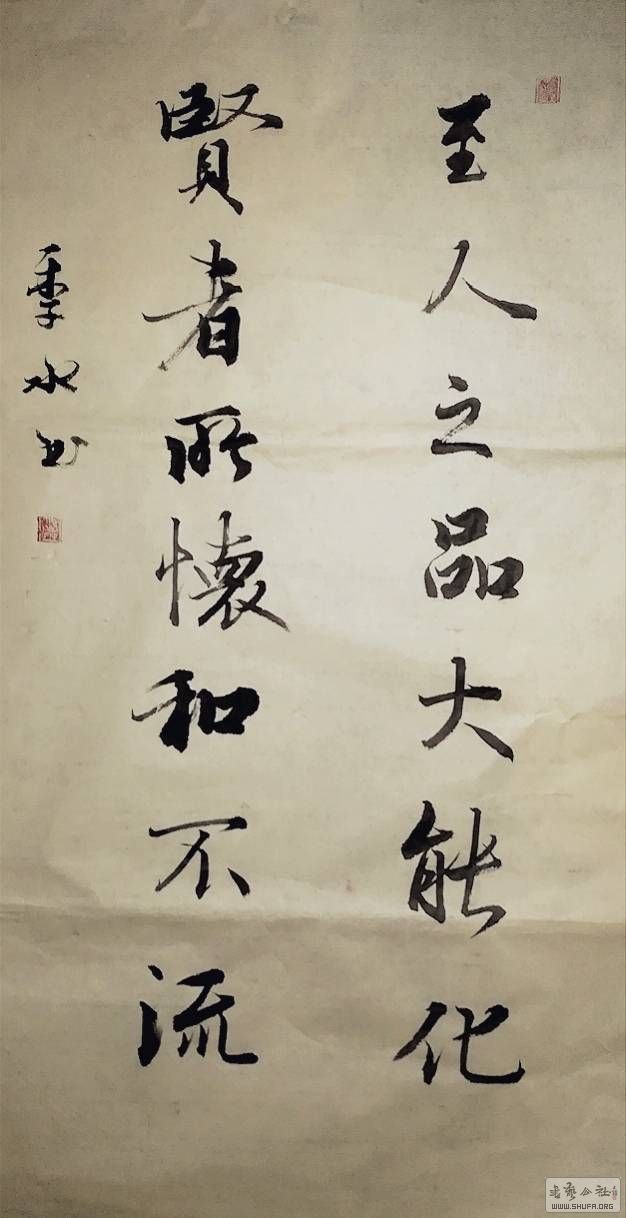 至人之品大能化
賢者所懷和不流
季水书
书艺公社
WWW.SHUFA.ORG